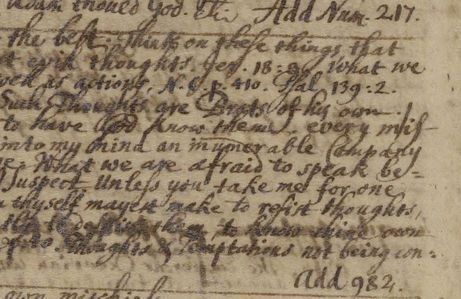 Adam thoued God. Add Num. 217.
the best. Think on these things, that
evil thoughts. Jer. 18: 8. What we
as actions, N. C. p. 410. Psal. 139: 2.
Such Thoughts are of his own.
to have God know them. every mis-
into my mind an inumerable Company
What we are afraid to speak be-
Suspect. Unless you take me for one
thyself mayest make to resist thoughts,
to know thine own
Thoughts & Temptations not being con-
Add 982.
own mischief